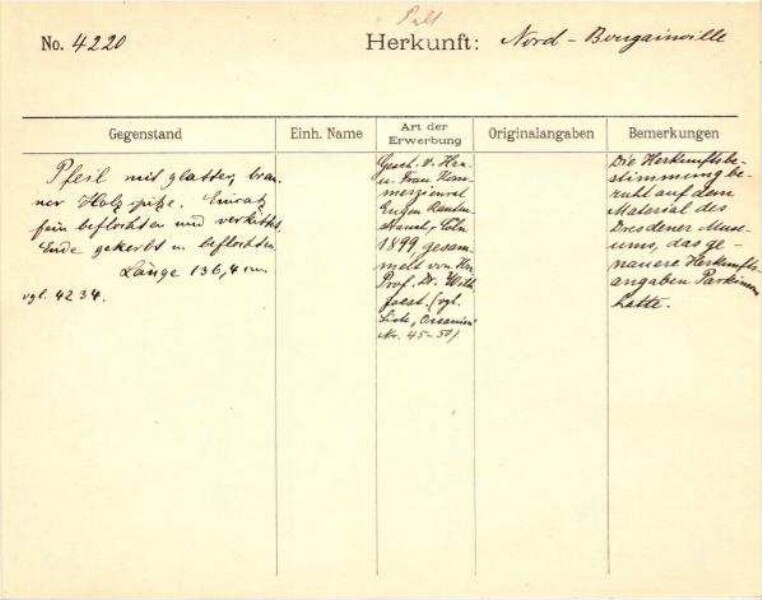 No. 4220
Herkunft: Nord - Bougainville
Gegenstand
Einh. Name
Art der
Erwerbung
Originalangaben
Bemerkungen
Pfeil mit glatter, brau-
ner Holzspitze. Einsatz
fein beflochten und verkittet.
Ende gekerbt u. beflochten.
Länge 136,4 cm.
vgl. 4234.
Gesch. v. Hrn.
u. Frau Kom-
merzienrat
Eugen Rauten-
strauch, Cöln
1899, gesam-
melt von Hn.
Prof. Dr. Wilh.
Joest. (vgl.
Liste "Ozeanien"
Nr. 45-50)
Die Herkunftsbe-
stimmung be-
ruht auf dem
Material des
Dresdener Muse-
ums, das ge-
nauere Herkunfts-
angaben Parkinsons
hatte.